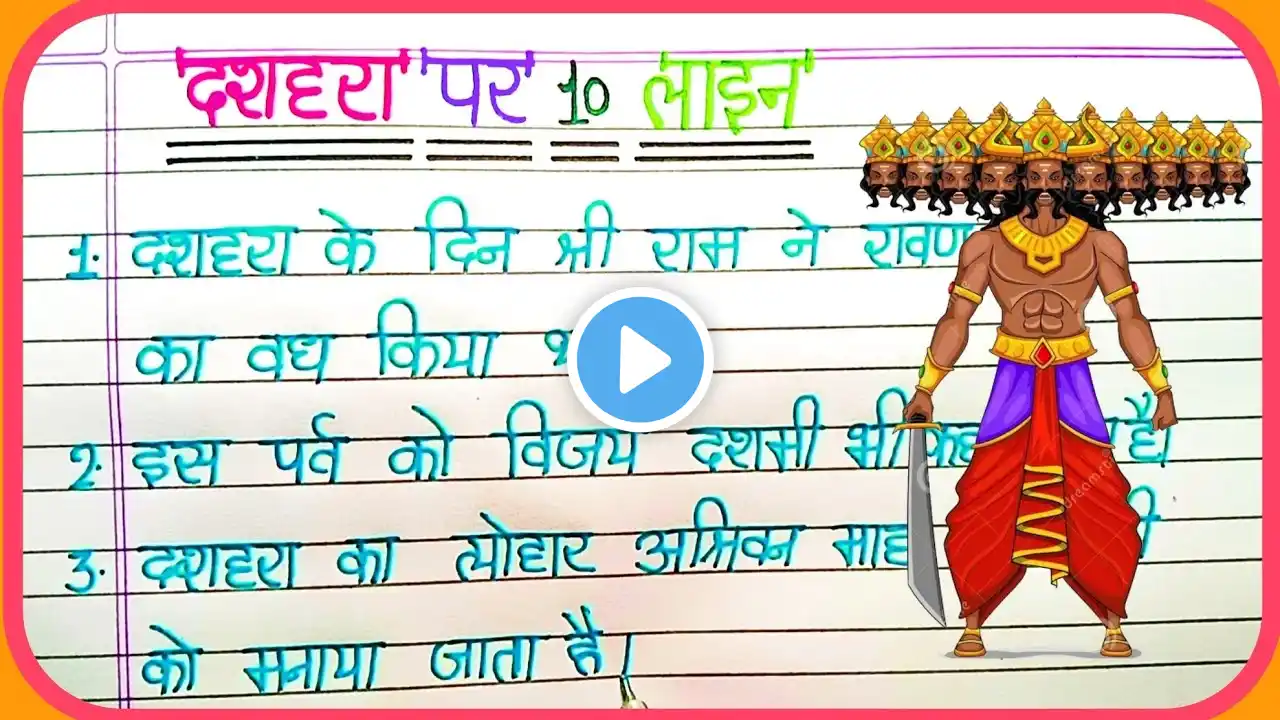 दशहरा पर 10 लाइन
1. दशहरा के दिन श्री राम ने रावण
का वध किया
2. इस पर्व को विजय दशमी भी है।
3. दशहरा का त्योहार अश्विन माह
को मनाया जाता है।